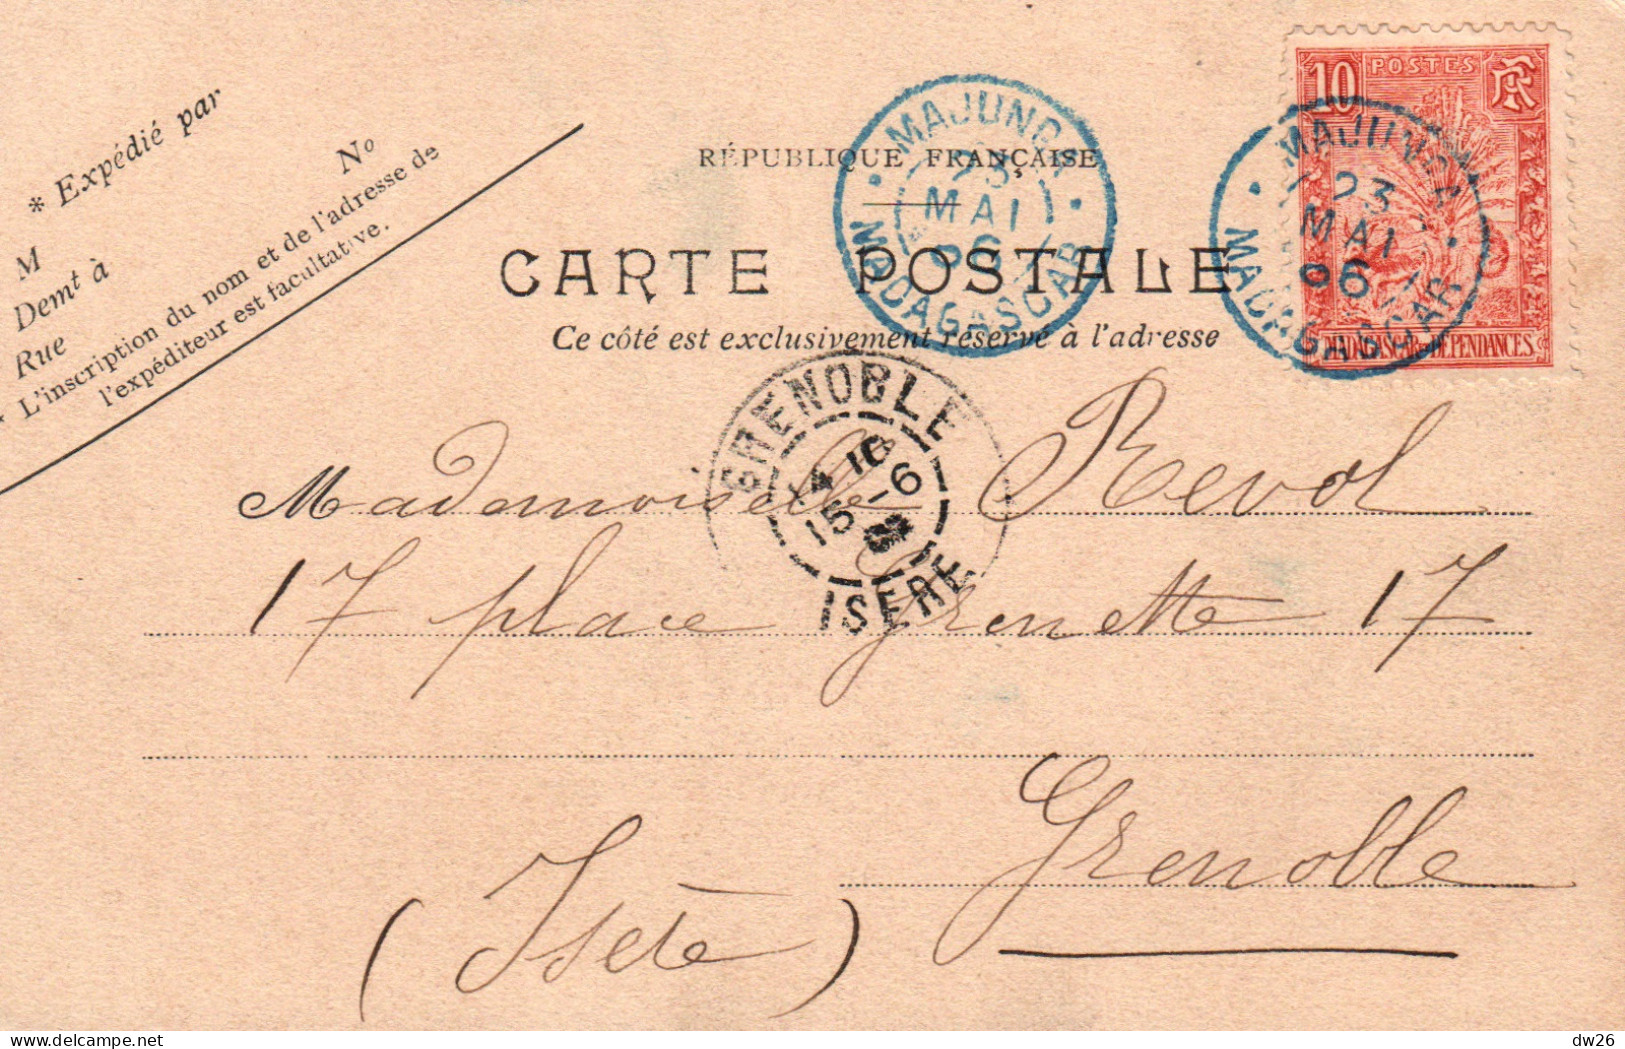 * Expédié par
N°
M
Demt à
Rue
* L'inscription du nom et de l'adresse de
l'expéditeur est facultative.
RÉPUBLIQUE FRANÇAISE
CARTE POSTALE
Ce côté est exclusivement réservé à l'adresse
MAJUNGA
23
MAI
06
MADAGASCAR
10 POSTES RF
MAJUNGA
23
MAI
06
MADAGASCAR
MADAGASCAR ET DÉPENDANCES
GRENOBLE
15 -6
ISÈRE
Mademoiselle Revol
17 place Grenette 17
Grenoble
(Isère)
delcampe.net
dw26